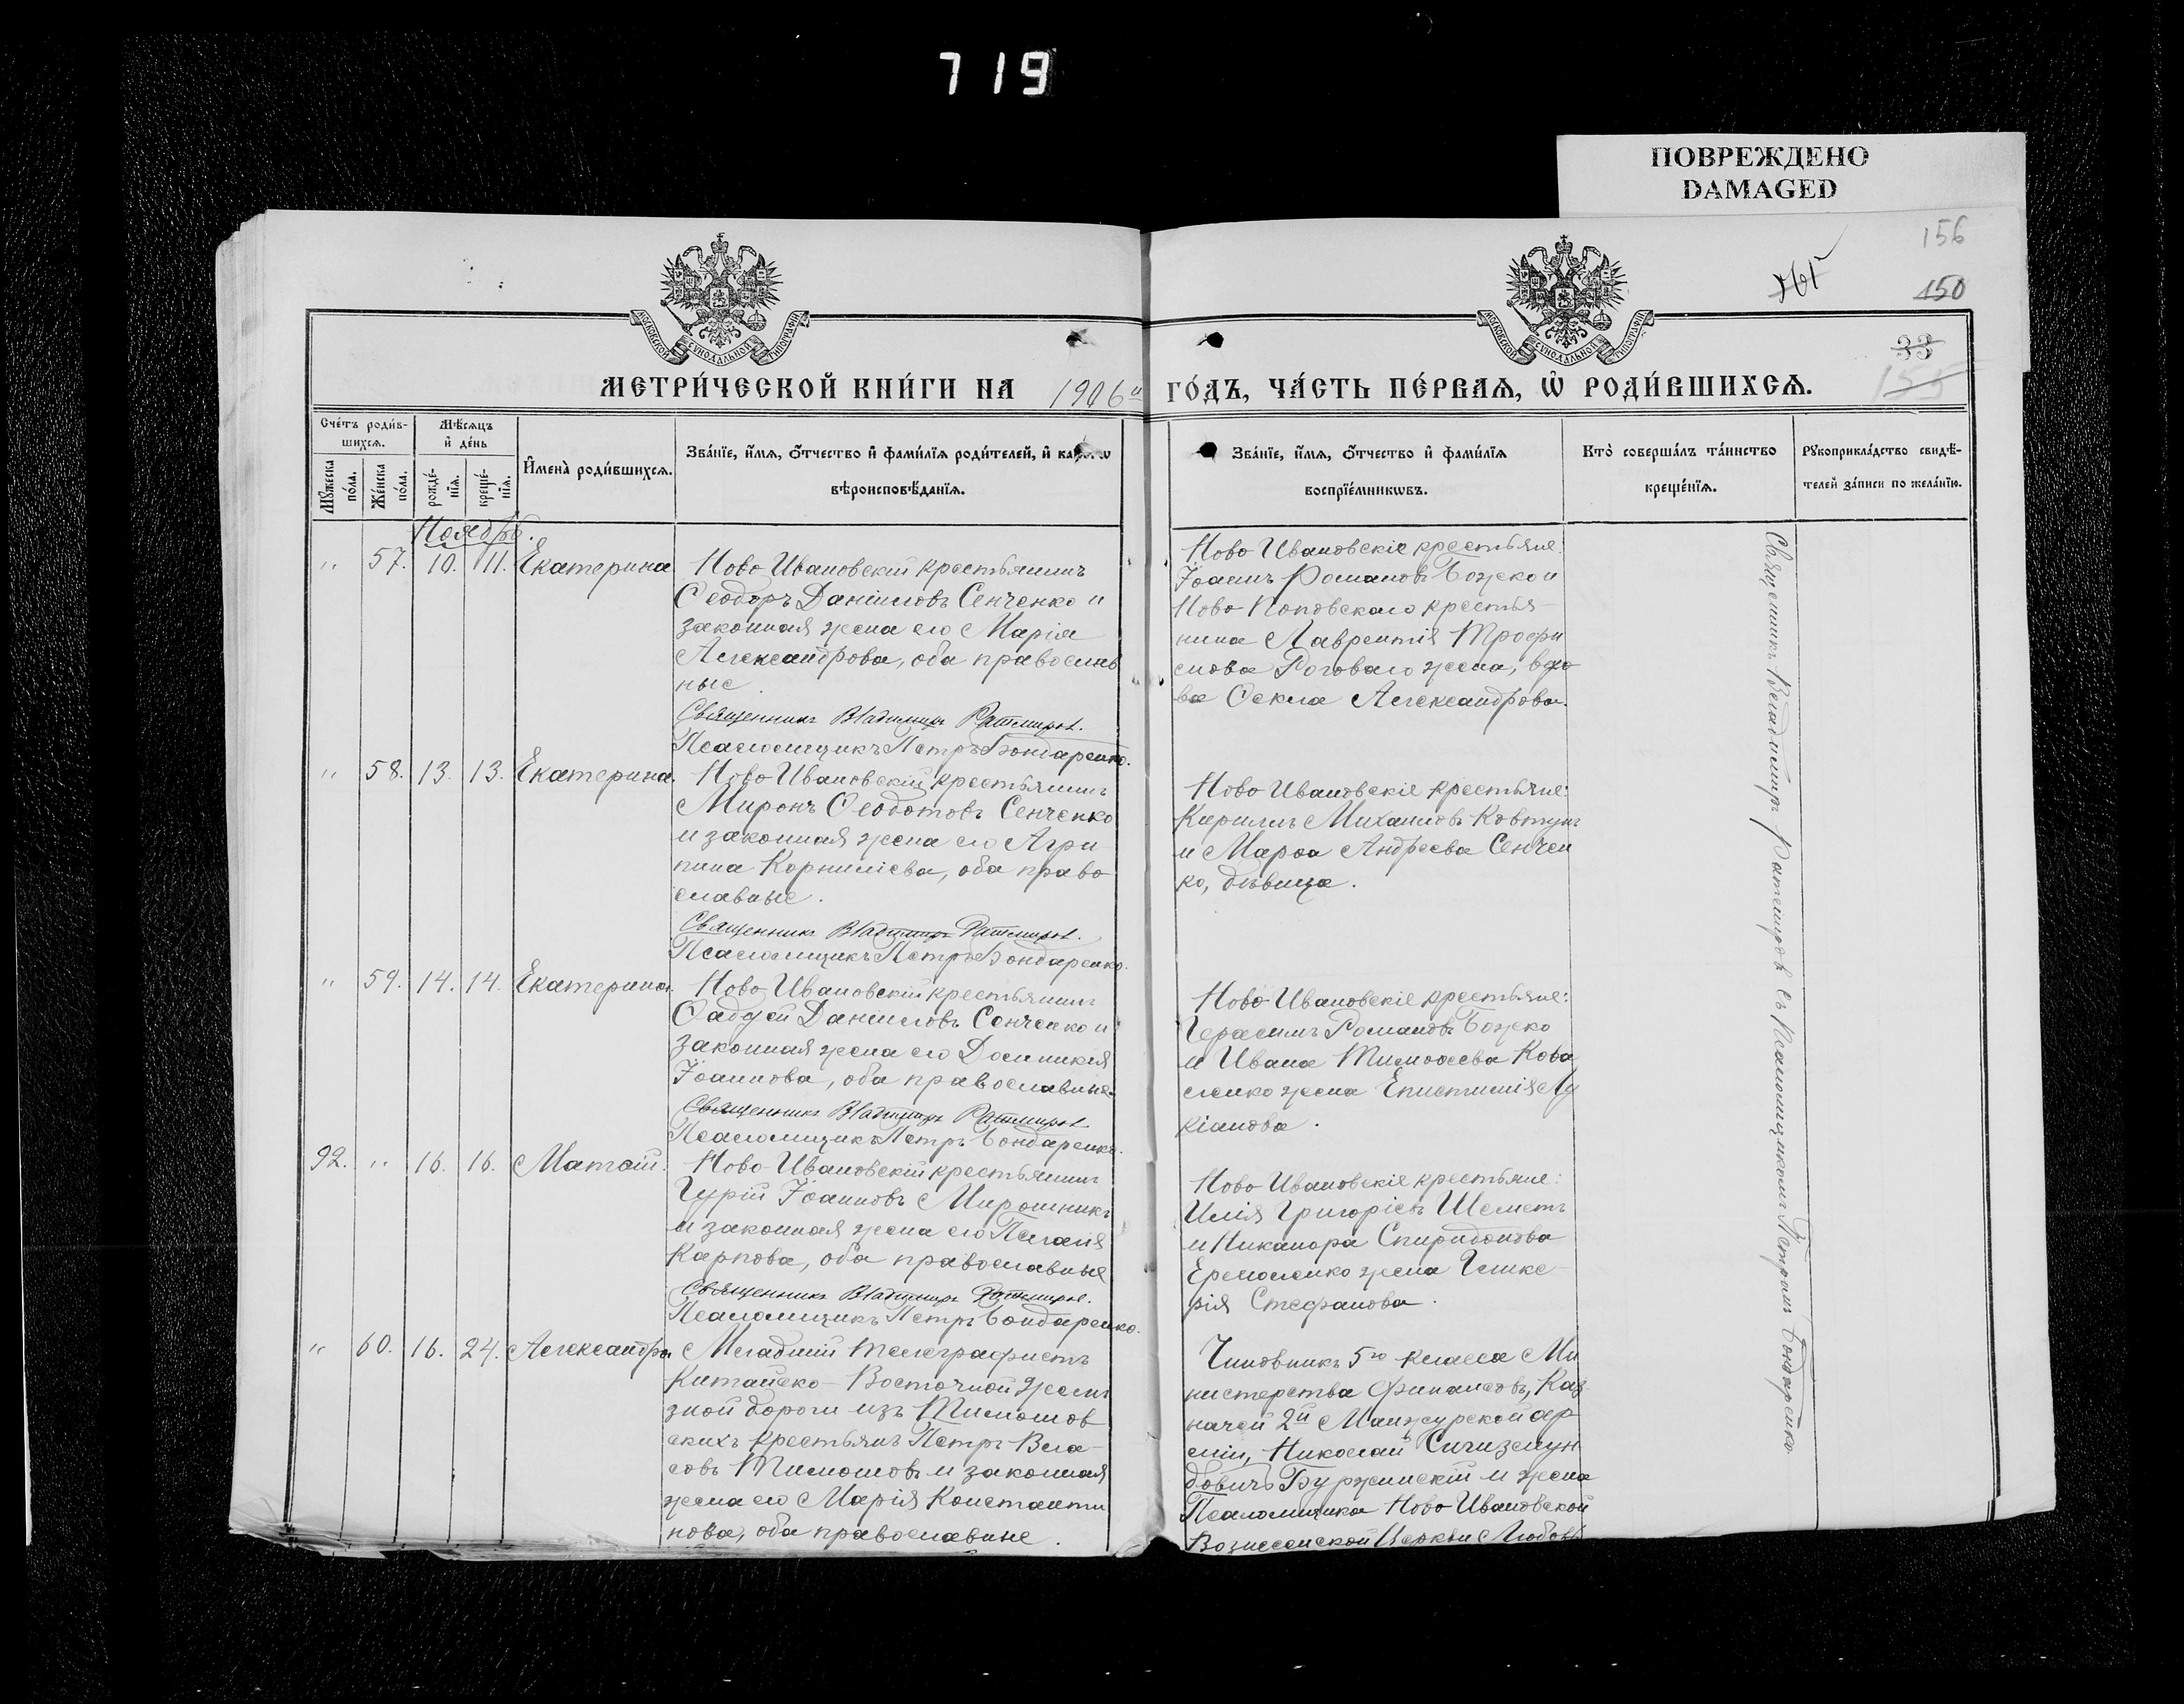 719
ПОВРЕЖДЕНО
DAMAGED
156
150
33
155
МОСКОВСКОЙ СѴНОДАЛЬНОЙ ТИПОГРАФІИ
МОСКОВСКОЙ СѴНОДАЛЬНОЙ ТИПОГРАФІИ
МЕТРИ́ЧЕСКОЙ КНИ́ГИ НА 1906й ГО́ДЪ, ЧА́СТЬ ПЕ́РВАѦ, Ѡ҆ РОДИ́ВШИХСѦ.
Сче́тъ роди́в-
шихсѧ.
Мꙋ́жеска по́ла.
Же́нска по́ла.
Мѣ́сѧцъ
и҆ де́нь
рожде́-
нїѧ.
креще́-
нїѧ.
И҆мена̀ роди́вшихсѧ.
Зва́нїе, и҆́мѧ, ѻ҆́тчество и҆ фами́лїѧ роди́телей, и҆
вѣроисповѣ́данїѧ.
Зва́нїе, и҆́мѧ, ѻ҆́тчество и҆ фами́лїѧ
воспрїе́мникѡвъ.
Кто̀ соверша́лъ та́инство
креще́нїѧ.
Рꙋкоприкла́дство свидѣ́-
телей за́писи по жела́нїю.
Ноябрь.
" 57. 10. 11. Екатерина
Ново Ивановскій крестьянинъ
Ѳеодоръ Даніиловъ Сенченко и
законная жена его Марія
Александрова, оба православ
ные
Священникъ Владимиръ Ратмировъ.
Псаломщикъ Петръ Бондаренко.
Ново Ивановскіе крестьяне:
Іоаннъ Романовъ Божко и
Ново Поповскаго крестья-
нина Лаврентія Трофи
мова Роговаго жена, вдо
ва Ѳекла Александрова.
" 58. 13. 13. Екатерина.
Ново Ивановскій крестьянинъ
Миронъ Ѳеодотовъ Сенченко
и законная жена его Агри
пина Корниліева, оба право
славные.
Священникъ Владимиръ Ратмировъ.
Псаломщикъ Петръ Бондаренко.
Ново Ивановскіе крестьяне:
Кириллъ Михаиловъ Ковтунъ
и Марѳа Андреева Сенчен
ко, дѣвица.
" 59. 14. 14. Екатерина.
Ново Ивановскій крестьянинъ
Ѳаддей Даніиловъ Сенченко и
законная жена его Домникія
Іоаннова, оба православные.
Священникъ Владимиръ Ратмировъ.
Псаломщикъ Петръ Бондаренко.
Ново Ивановскіе крестьяне:
Герасимъ Романовъ Божко
и Ивана Тимоѳеева Кова
ленко жена Епистимія Лу
кіанова.
92. " 16. 16. Матѳій.
Ново Ивановскій крестьянинъ
Гурій Іоанновъ Мирошникъ
и законная жена его Пелагія
Карпова, оба православные
Священникъ Владимиръ Ратмировъ.
Псаломщикъ Петръ Бондаренко.
Ново Ивановскіе крестьяне:
Илія Григоріевъ Шеметъ
и Никанора Спиридонова
Ермоленко жена Глике-
рія Стефанова.
" 60. 16. 24. Александра
Младшій телеграфистъ
Китайско-Восточной желѣ
зной дороги изъ Тимошов
скихъ крестьянъ Петръ Вла-
совъ Тимошовъ и законная
жена его Марія Константи
нова, оба православные.
Чиновникъ 5го класса Ми
нистерства финансовъ, Каз
начей 2й Манжурской ар
міи, Николай Сигизмун
довичъ Буржинскій и жена
Псаломщика Ново Ивановской
Вознесенской Церкви Любовь
Священникъ Владимиръ Ратмировъ съ Псаломщикомъ Петромъ Бондаренко